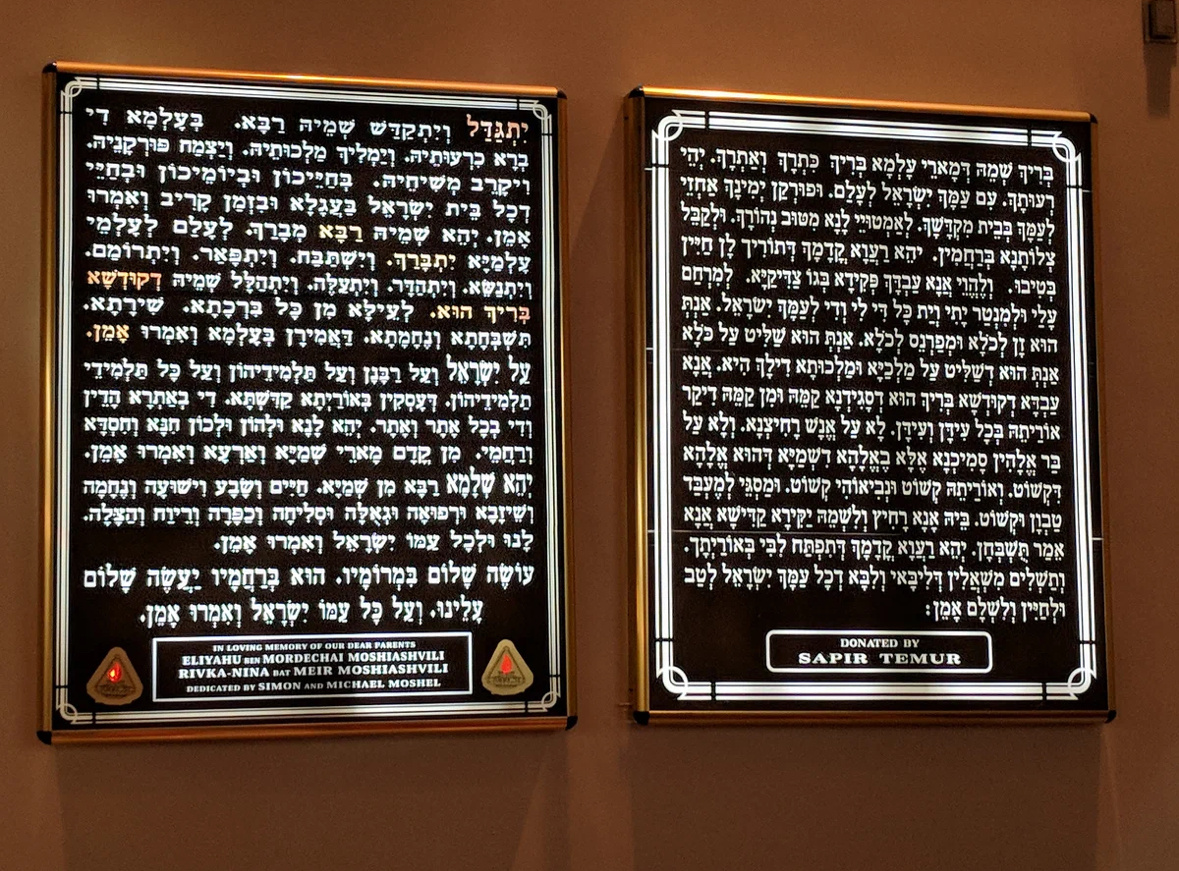 יִתְגַּדַּל וְיִתְקַדַּשׁ שְׁמֵיהּ רַבָּא. בְּעָלְמָא דִי
בְרָא כִרְעוּתֵיהּ. וְיַמְלִיךְ מַלְכוּתֵיהּ. וְיַצְמַח פּוּרְקָנֵיהּ.
וִיקָרֵב מְשִׁיחֵיהּ. בְּחַיֵּיכוֹן וּבְיוֹמֵיכוֹן וּבְחַיֵּי
דְכָל בֵּית יִשְׂרָאֵל בַּעֲגָלָא וּבִזְמַן קָרִיב וְאִמְרוּ
אָמֵן. יְהֵא שְׁמֵיהּ רַבָּא מְבָרַךְ. לְעָלַם לְעָלְמֵי
עָלְמַיָּא יִתְבָּרַךְ. וְיִשְׁתַּבַּח. וְיִתְפָּאַר. וְיִתְרוֹמַם.
וְיִתְנַשֵּׂא. וְיִתְהַדָּר. וְיִתְעַלֶּה. וְיִתְהַלָּל שְׁמֵיהּ דְּקוּדְשָׁא
בְּרִיךְ הוּא. לְעֵילָּא מִן כָּל בִּרְכָתָא. שִׁירָתָא.
תִּשְׁבְּחָתָא וְנֶחֱמָתָא. דַּאֲמִירָן בְּעָלְמָא וְאִמְרוּ אָמֵן.
עַל יִשְׂרָאֵל וְעַל רַבָּנָן וְעַל תַּלְמִידֵיהוֹן וְעַל כָּל תַּלְמִידֵי
תַלְמִידֵיהוֹן. דְּעָסְקִין בְּאוֹרַיְתָא קַדִּשְׁתָּא. דִּי בְאַתְרָא הָדֵין
וְדִי בְכָל אֲתַר וַאֲתַר. יְהֵא לָנָא וּלְהוֹן וּלְכוֹן חִנָּא וְחִסְדָּא
וְרַחֲמֵי. מִן קֳדָם מָארֵי שְׁמַיָּא וְאַרְעָא וְאִמְרוּ אָמֵן.
יְהֵא שְׁלָמָא רַבָּא מִן שְׁמַיָּא. חַיִּים וְשָׂבָע וִישׁוּעָה וְנֶחָמָה
וְשֵׁיזָבָא וּרְפוּאָה וּגְאֻלָּה וּסְלִיחָה וְכַפָּרָה וְרֵיוַח וְהַצָּלָה.
לָנוּ וּלְכָל עַמּוֹ יִשְׂרָאֵל וְאִמְרוּ אָמֵן.
עוֹשֶׂה שָׁלוֹם בִּמְרוֹמָיו. הוּא בְּרַחֲמָיו יַעֲשֶׂה שָׁלוֹם
עָלֵינוּ. וְעַל כָּל עַמּוֹ יִשְׂרָאֵל וְאִמְרוּ אָמֵן.
IN LOVING MEMORY OF OUR DEAR PARENTS
ELIYAHU BEN MORDECHAI MOSHIASHVILI
RIVKA-NINA BAT MEIR MOSHIASHVILI
DEDICATED BY SIMON AND MICHAEL MOSHEL
בְּרִיךְ שְׁמֵהּ דְּמָארֵי עָלְמָא בְּרִיךְ כִּתְרָךְ וְאַתְרָךְ. יְהֵי
רְעוּתָךְ. עִם עַמָּךְ יִשְׂרָאֵל לְעָלַם. וּפוּרְקַן יְמִינָךְ אַחֲזֵי
לְעַמָּךְ בְּבֵית מִקְדָּשָׁךְ. לְאַמְטוּיֵי לָנָא מִטּוּב נְהוֹרָךְ. וּלְקַבֵּל
צְלוֹתָנָא בְּרַחֲמִין. יְהֵא רַעֲוָא קֳדָמָךְ דְּתוֹרִיךְ לָן חַיִּין
בְּטִיבוּ. וְלֶהֱוֵי אֲנָא עַבְדָּךְ פְּקִידָא בְּגוֹ צַדִּיקַיָּא. לְמִרְחַם
עָלַי וּלְמִנְטַר יָתִי וְיַת כָּל דִּי לִי וְדִי לְעַמָּךְ יִשְׂרָאֵל. אַנְתְּ
הוּא זָן לְכֹלָּא וּמְפַרְנֵס לְכֹלָּא. אַנְתְּ הוּא שַׁלִּיט עַל כֹּלָּא
אַנְתְּ הוּא דְשַׁלִּיט עַל מַלְכַיָּא וּמַלְכוּתָא דִּילָךְ הִיא. אֲנָא
עַבְדָּא דְקוּדְשָׁא בְּרִיךְ הוּא דְּסָגִידְנָא קַמֵּהּ וּמִן קַמֵּהּ דִּיקַר
אוֹרַיְתֵהּ בְּכָל עִידָן וְעִידָן. לָא עַל אֱנָשׁ רָחִיצְנָא. וְלָא עַל
בַּר אֱלָהִין סָמִיכְנָא אֶלָּא בֶּאֱלָהָא דִשְׁמַיָּא דְּהוּא אֱלָהָא
דִקְשׁוֹט. וְאוֹרַיְתֵהּ קְשׁוֹט וּנְבִיאוֹהִי קְשׁוֹט. וּמַסְגֵּי לְמֶעְבַּד
טָבְוָן וּקְשׁוֹט. בֵּיהּ אֲנָא רָחִיץ וְלִשְׁמֵהּ יַקִּירָא קַדִּישָׁא אֲנָא
אֵמַר תֻּשְׁבְּחָן. יְהֵא רַעֲוָא קֳדָמָךְ דְּתִפְתַּח לִבִּי בְּאוֹרַיְתָךְ.
וְתַשְׁלִים מִשְׁאֲלִין דְּלִיבַּאי וְלִבָּא דְכָל עַמָּךְ יִשְׂרָאֵל לְטַב
וּלְחַיִּין וְלִשְׁלָם אָמֵן:
DONATED BY
SAPIR TEMUR